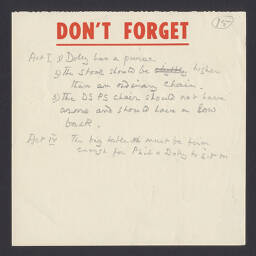 15
DON'T FORGET
Act I 1) Doby has a purse
2) The stool should be slightly higher
than an ordinary chair.
3) The DS PS chair should not have
arms and should have a low
back.
Act IV The big table must be firm
enough for Phil & Doby to sit on